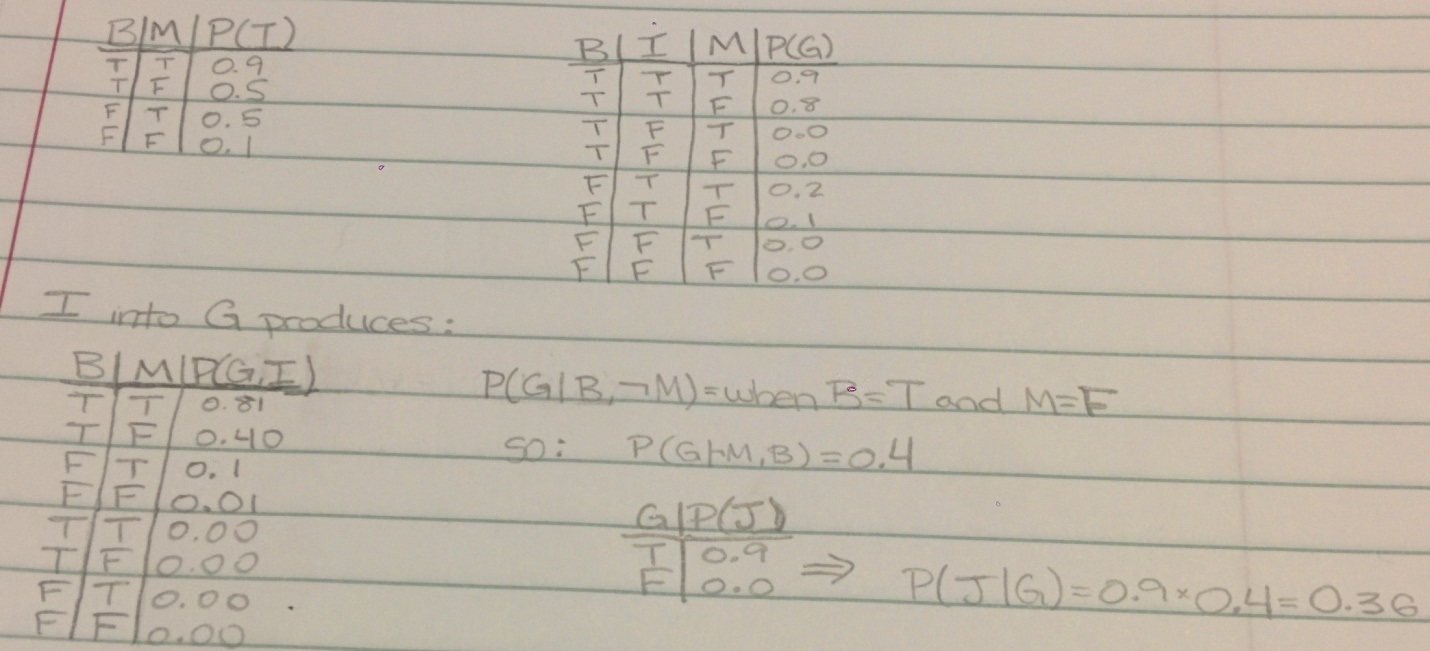 B|M|P(I)
T|T|0.9
T|F|0.5
F|T|0.5
F|F|0.1
B|I|M|P(G)
T|T|T|0.9
T|T|F|0.8
T|F|T|0.0
T|F|F|0.0
F|T|T|0.2
F|T|F|0.1
F|F|T|0.0
F|F|F|0.0
I into G produces:
B|M|P(G,I)
T|T|0.81
T|F|0.40
F|T|0.1
F|F|0.01
T|T|0.00
T|F|0.00
F|T|0.00
F|F|0.00
P(G|B,¬M)=when B=T and M=F
so: P(G|¬M,B)=0.4
G|P(J)
T|0.9
F|0.0
⇒ P(J|G)=0.9×0.4=0.36